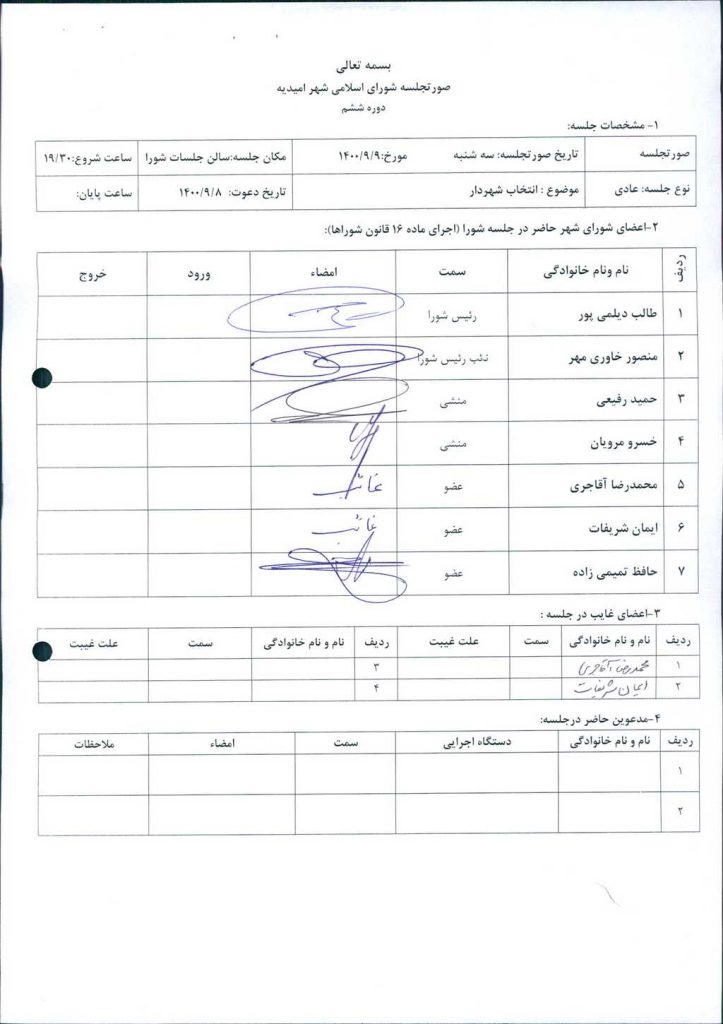 بسمه تعالی
صورتجلسه شورای اسلامی شهر امیدیه
دوره ششم
۱- مشخصات جلسه:
صورتجلسه تاریخ صورتجلسه: سه شنبه مورخ:۱۴۰۰/۹/۹ مکان جلسه:سالن جلسات شورا ساعت شروع:۱۹/۳۰
نوع جلسه: عادی موضوع : انتخاب شهردار تاریخ دعوت: ۱۴۰۰/۹/۸ ساعت پایان:
۲-اعضای شورای شهر حاضر در جلسه شورا (اجرای ماده ۱۶ قانون شوراها):
ردیف نام ونام خانوادگی سمت امضاء ورود خروج
۱ طالب دیلمی پور رئیس شورا
۲ منصور خاوری مهر نائب رئیس شورا
۳ حمید رفیعی منشی
۴ خسرو مرویان منشی
۵ محمدرضا آقاجری عضو غائب
۶ ایمان شریفات عضو غائب
۷ حافظ تمیمی زاده عضو
۳-اعضای غایب در جلسه :
ردیف نام و نام خانوادگی سمت علت غیبت ردیف نام و نام خانوادگی سمت علت غیبت
۱ محمدرضا آقاجری ۳
۲ ایمان شریفات ۴
۴-مدعوین حاضر درجلسه:
ردیف نام و نام خانوادگی دستگاه اجرایی سمت امضاء ملاحظات
۱
۲